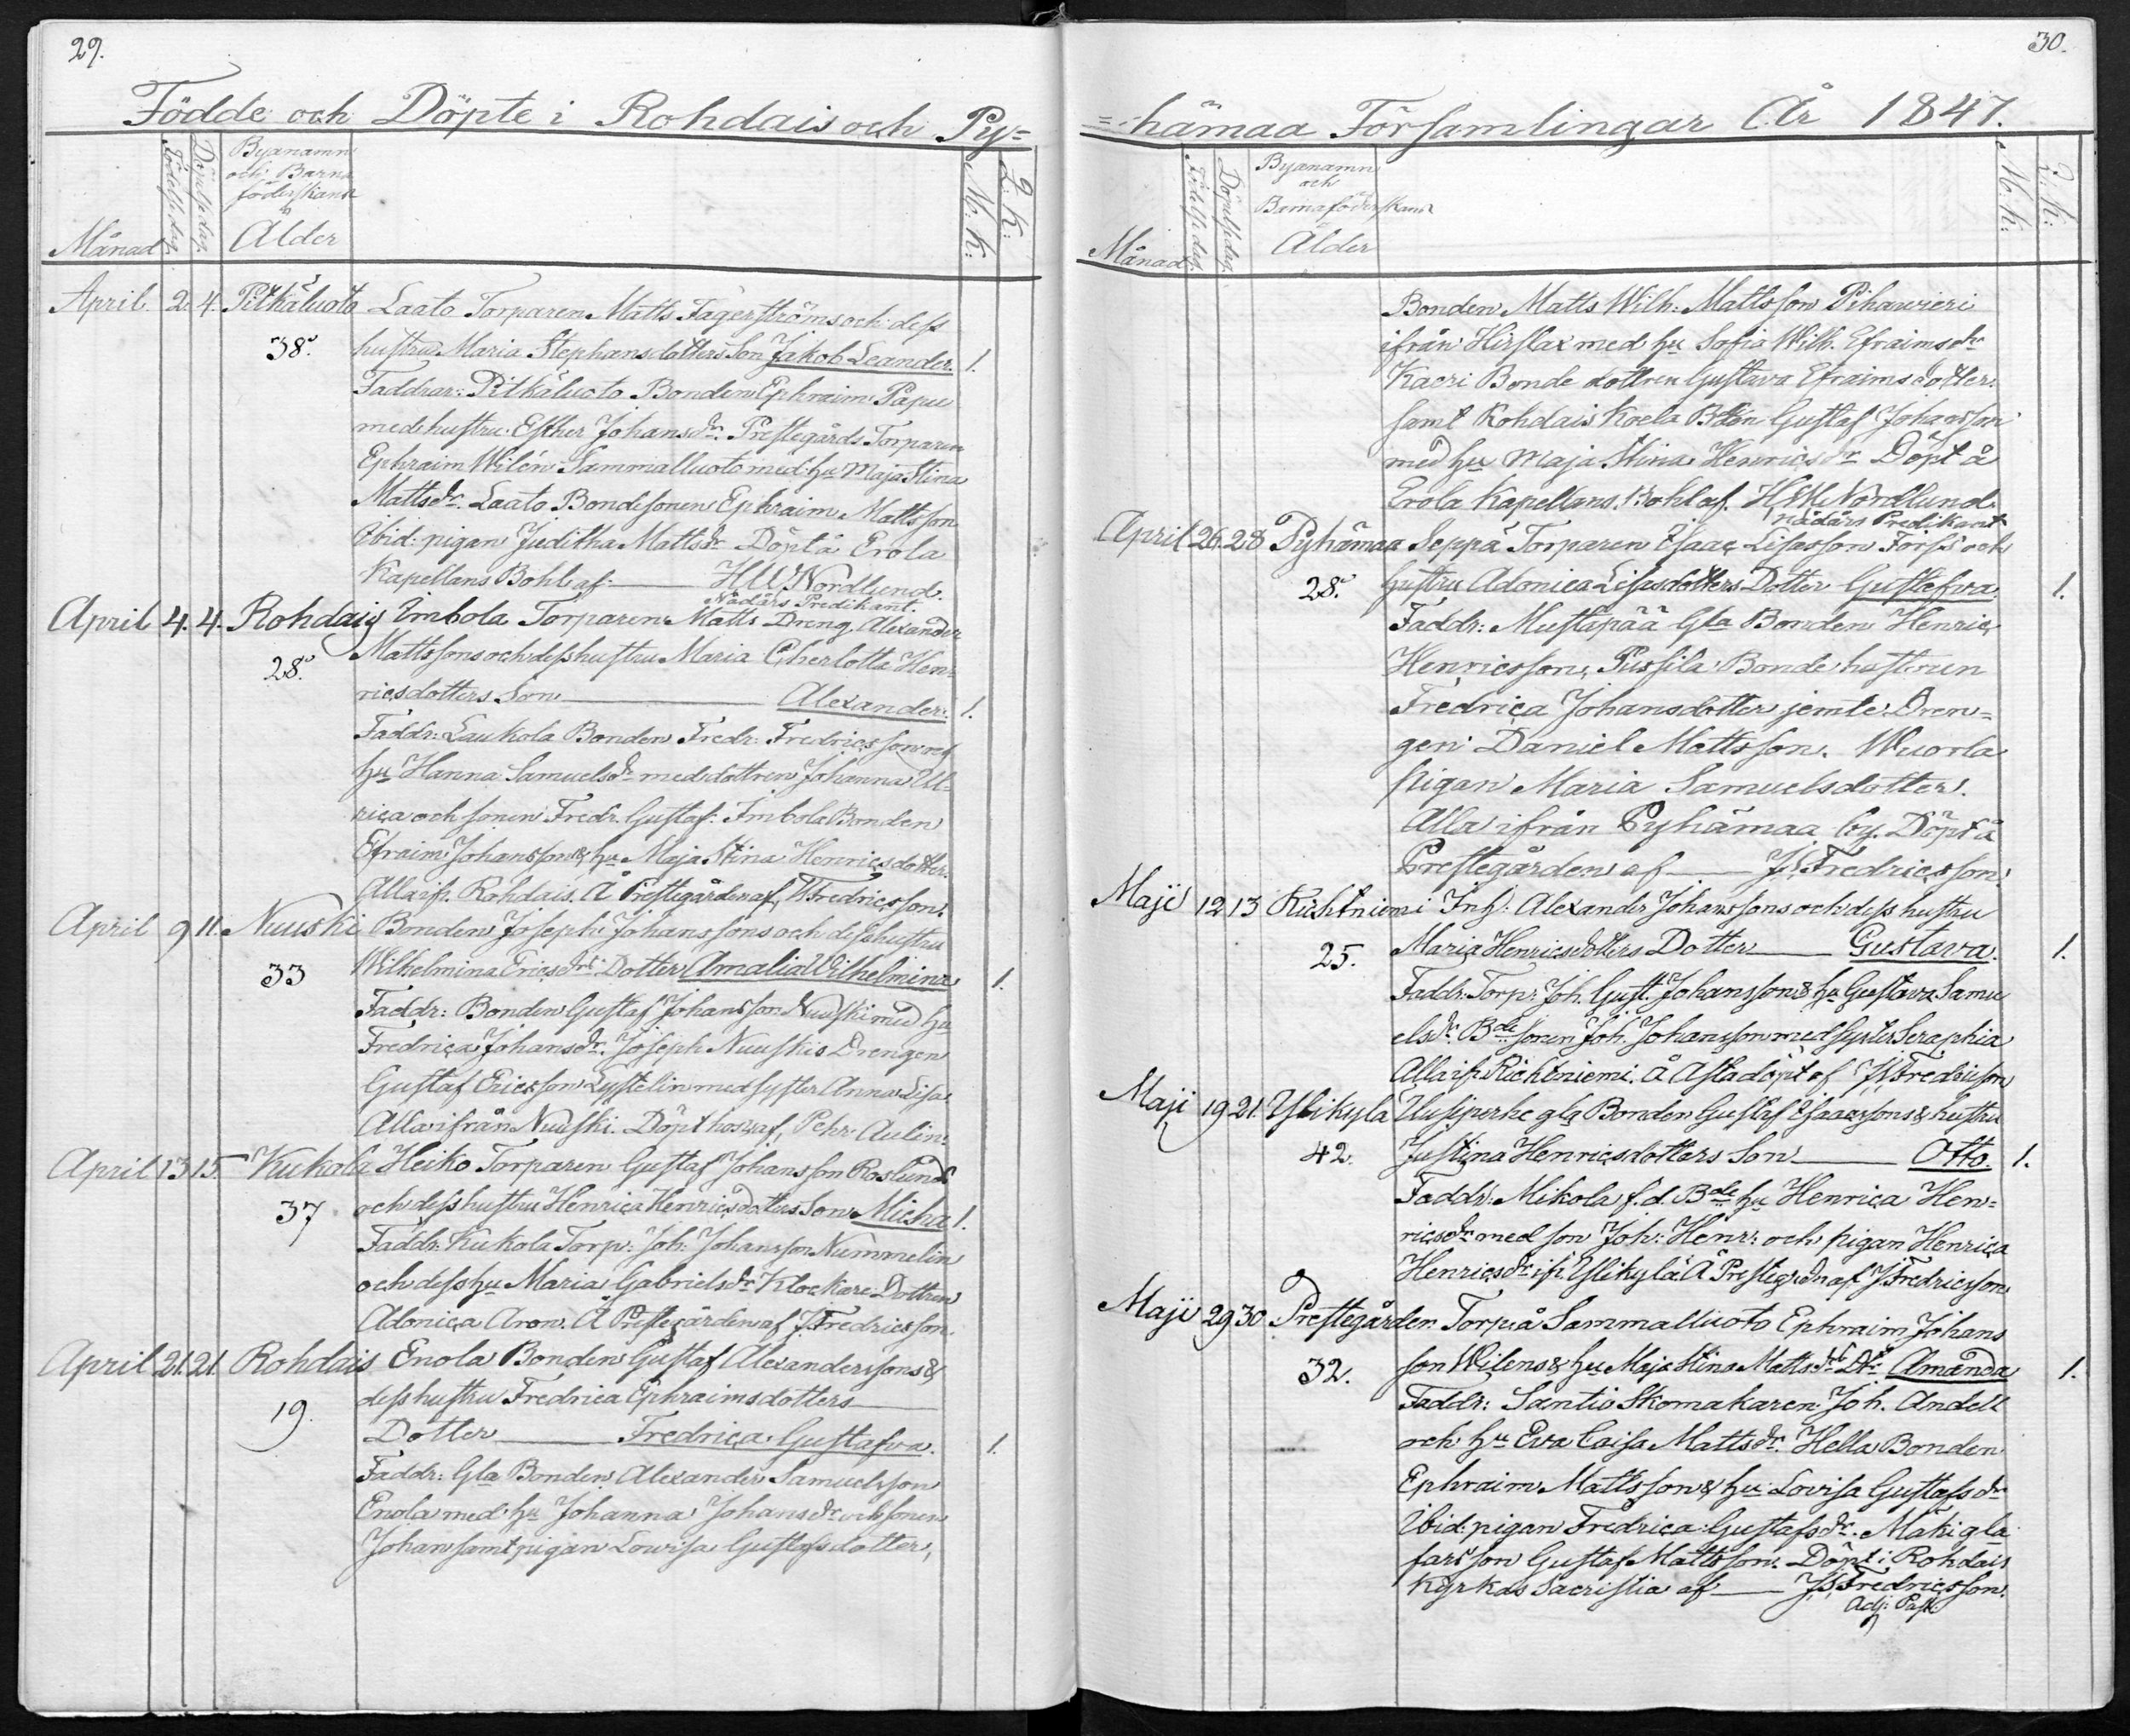 29.
Födde och Döpte i Rohdais och Py=
Månad
Födelsedag.
Döpelsedag.
Byanamn
och Barna
föderskans
Ålder
M. K:
Q: K:
April 2. 4. Pitkäluoto Laato Torparen Matts Fagerströms och dess
38. hustru Maria Stephansdotters Son Jakob Leander. 1.
Faddrar: Pitkäluoto Bonden Ephraim Papu
med hustru Esther Johansdr. Prestegårds Torparen
Ephraim Wilén Sammalluoto med hu Maja Stina
Mattsdr. Laato Bondesonen Ephraim Mattsson
Ibid: pigan Juditha Mattsdr Döpt å Erola
Kapellans Bohl af HW Nordlund.
Nådårs Predikant.
April 4. 4. Rohdais Imbola Torparen Matts Dreng Alexander
28. Mattssons och dess hustru Maria Charlotta Hen-
ricsdotters Son Alexander. 1.
Faddr: Laukola Bonden Fredr: Fredricsson och
hu Hanna Samuelsdr med dottren Johanna Ul-
rica och sonen Fredr. Gustaf. Imbola Bonden
Efraim Johansson & hu Maja Stina Henricsdotter.
Alla ifr. Rohdais. Å Prestegården af Fredricsson.
April 9 11. Nuuski Bonden Joseph Johanssons och dess hustru
33 Wilhelmina Ericsdrs Dotter Amalia Wilhelmina 1.
Faddr: Bonden Gustaf Johansson Nuuski med hu
Fredrica Johansdr. Joseph Nuuskis Drengen
Gustaf Ericsson Lystelin med syster Anna Lisa
Alla ifrån Nuuski. Döpt hos af Pehr Aulin.
April 13 15. Kukola Heiko Torparen Gustaf Johansson Roslunds
37 och dess hustru Henrica Henricsdotters Son Micha 1.
Faddr: Kukola Torp: Joh: Johansson Nummelin
och dess hu Maria Gabrielsdr Klockare Dottren
Adonica Aron. Å Prestegården af J Fredricsson.
April 21. 21. Rohdais Enola Bonden Gustaf Alexanderssons &
19. dess hustru Fredrica Ephraimsdotters
Dotter Fredrica Gustafva. 1.
Faddr: Gla Bonden Alexander Samuelsson
Enola med hu Johanna Johansdr och sonen
Johan samt pigan Lowisa Gustafsdotter,
30.
=hämaa Församlingar År 1847.
Månad
Födelsedag.
Döpelsedag.
Byanamn
och
Barnaföderskans
Ålder
M: K:
Q: K:
Bonden Matts Wilh: Mattsson Pihawieri
ifrån Hirslax med hu Sofia Wilh. Efraimsdr
Kaeri Bonde dottren Gustava Efraimsdotter.
samt Rohdais Koela Bden Gustaf Johansson
med hu Maja Stina Henricsdr Döpt å
Erola Kapellans Bohl af. HW Nordlund.
Nådårs Predikant
April 26. 28 Pyhämaa Seppä Torparen Isaac Lisasson Förss och
28. hustru Adonica Lisasdotters Dotter Gustefva. 1.
Faddr: Mustapää Gla Bonden Henric
Henricsson, Pussila Bonde hustrun
Fredrica Johansdotter jemte Dren=
gen Daniel Mattsson. Wuorla
pigan Maria Samuelsdotter.
Alla ifrån Pyhämaa by. Döpt å
Prestegården af J. Fredricsson.
Maji 12 13 Riihtniemi Inh: Alexander Johanssons och dess hustru
25. Maria Henricsdotters Dotter Gustava. 1.
Faddr. Torp: Joh. Gust. Johansson & hu Gustava Samu
elsdr. Bde sonen Joh. Johansson med syster Seraphia
Alla ifr. Richtniemi. Å Asta döpt af J Fredricson
Maji 19 21. Ylikylä Uusiperhe gla Bonden Gustaf Isaacssons & hustru
42. Justina Henricsdotters Son Otto. 1.
Faddr: Mikola f.d. Bde hu Henrica Hen=
ricsdr med son Joh: Henr: och pigan Henrica
Henricsdr ifr Ylikylä. Å Prestegrdn af J Fredricsson
Maji 29 30 Prestegården Torp å Sammalluoto Ephraim Johans
32. son Wilens & hu Maja Stina Mattsdrs Dtr Amanda 1.
Faddr: Santio Skomakaren Joh. Andell
och hu Eva Caisa Mattsdr. Hella Bonden
Ephraim Mattsson & hu Lovisa Gustafsdr
Ibid: pigan Fredrica Gustafsdr. Mäki gla
fars son Gustaf Mattsson. Döpt i Rohdais
Kyrkas Sacristia af J Fredricsson.
Adj: Past: